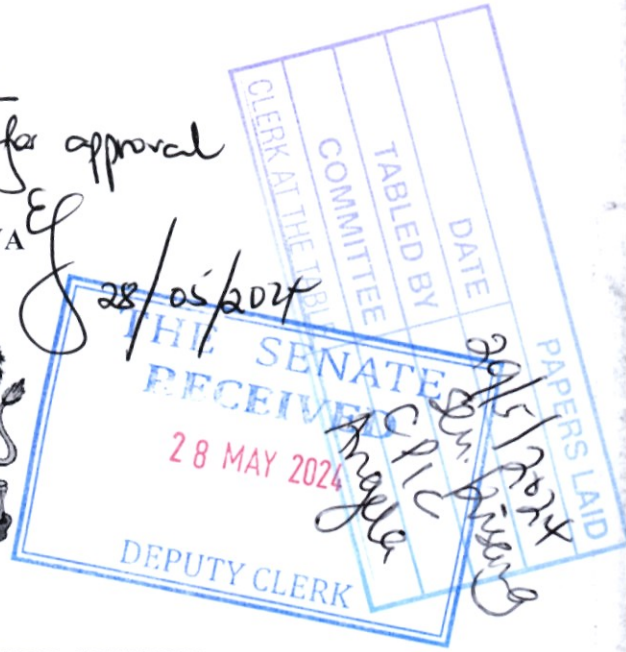 for approval
28/05/2024
THE SENATE
RECEIVED
28 MAY 2024
DEPUTY CLERK
PAPERS LAID
DATE 29/5/2024
TABLED BY Sen.
COMMITTEE CPIC
CLERK AT THE TABLE Angela